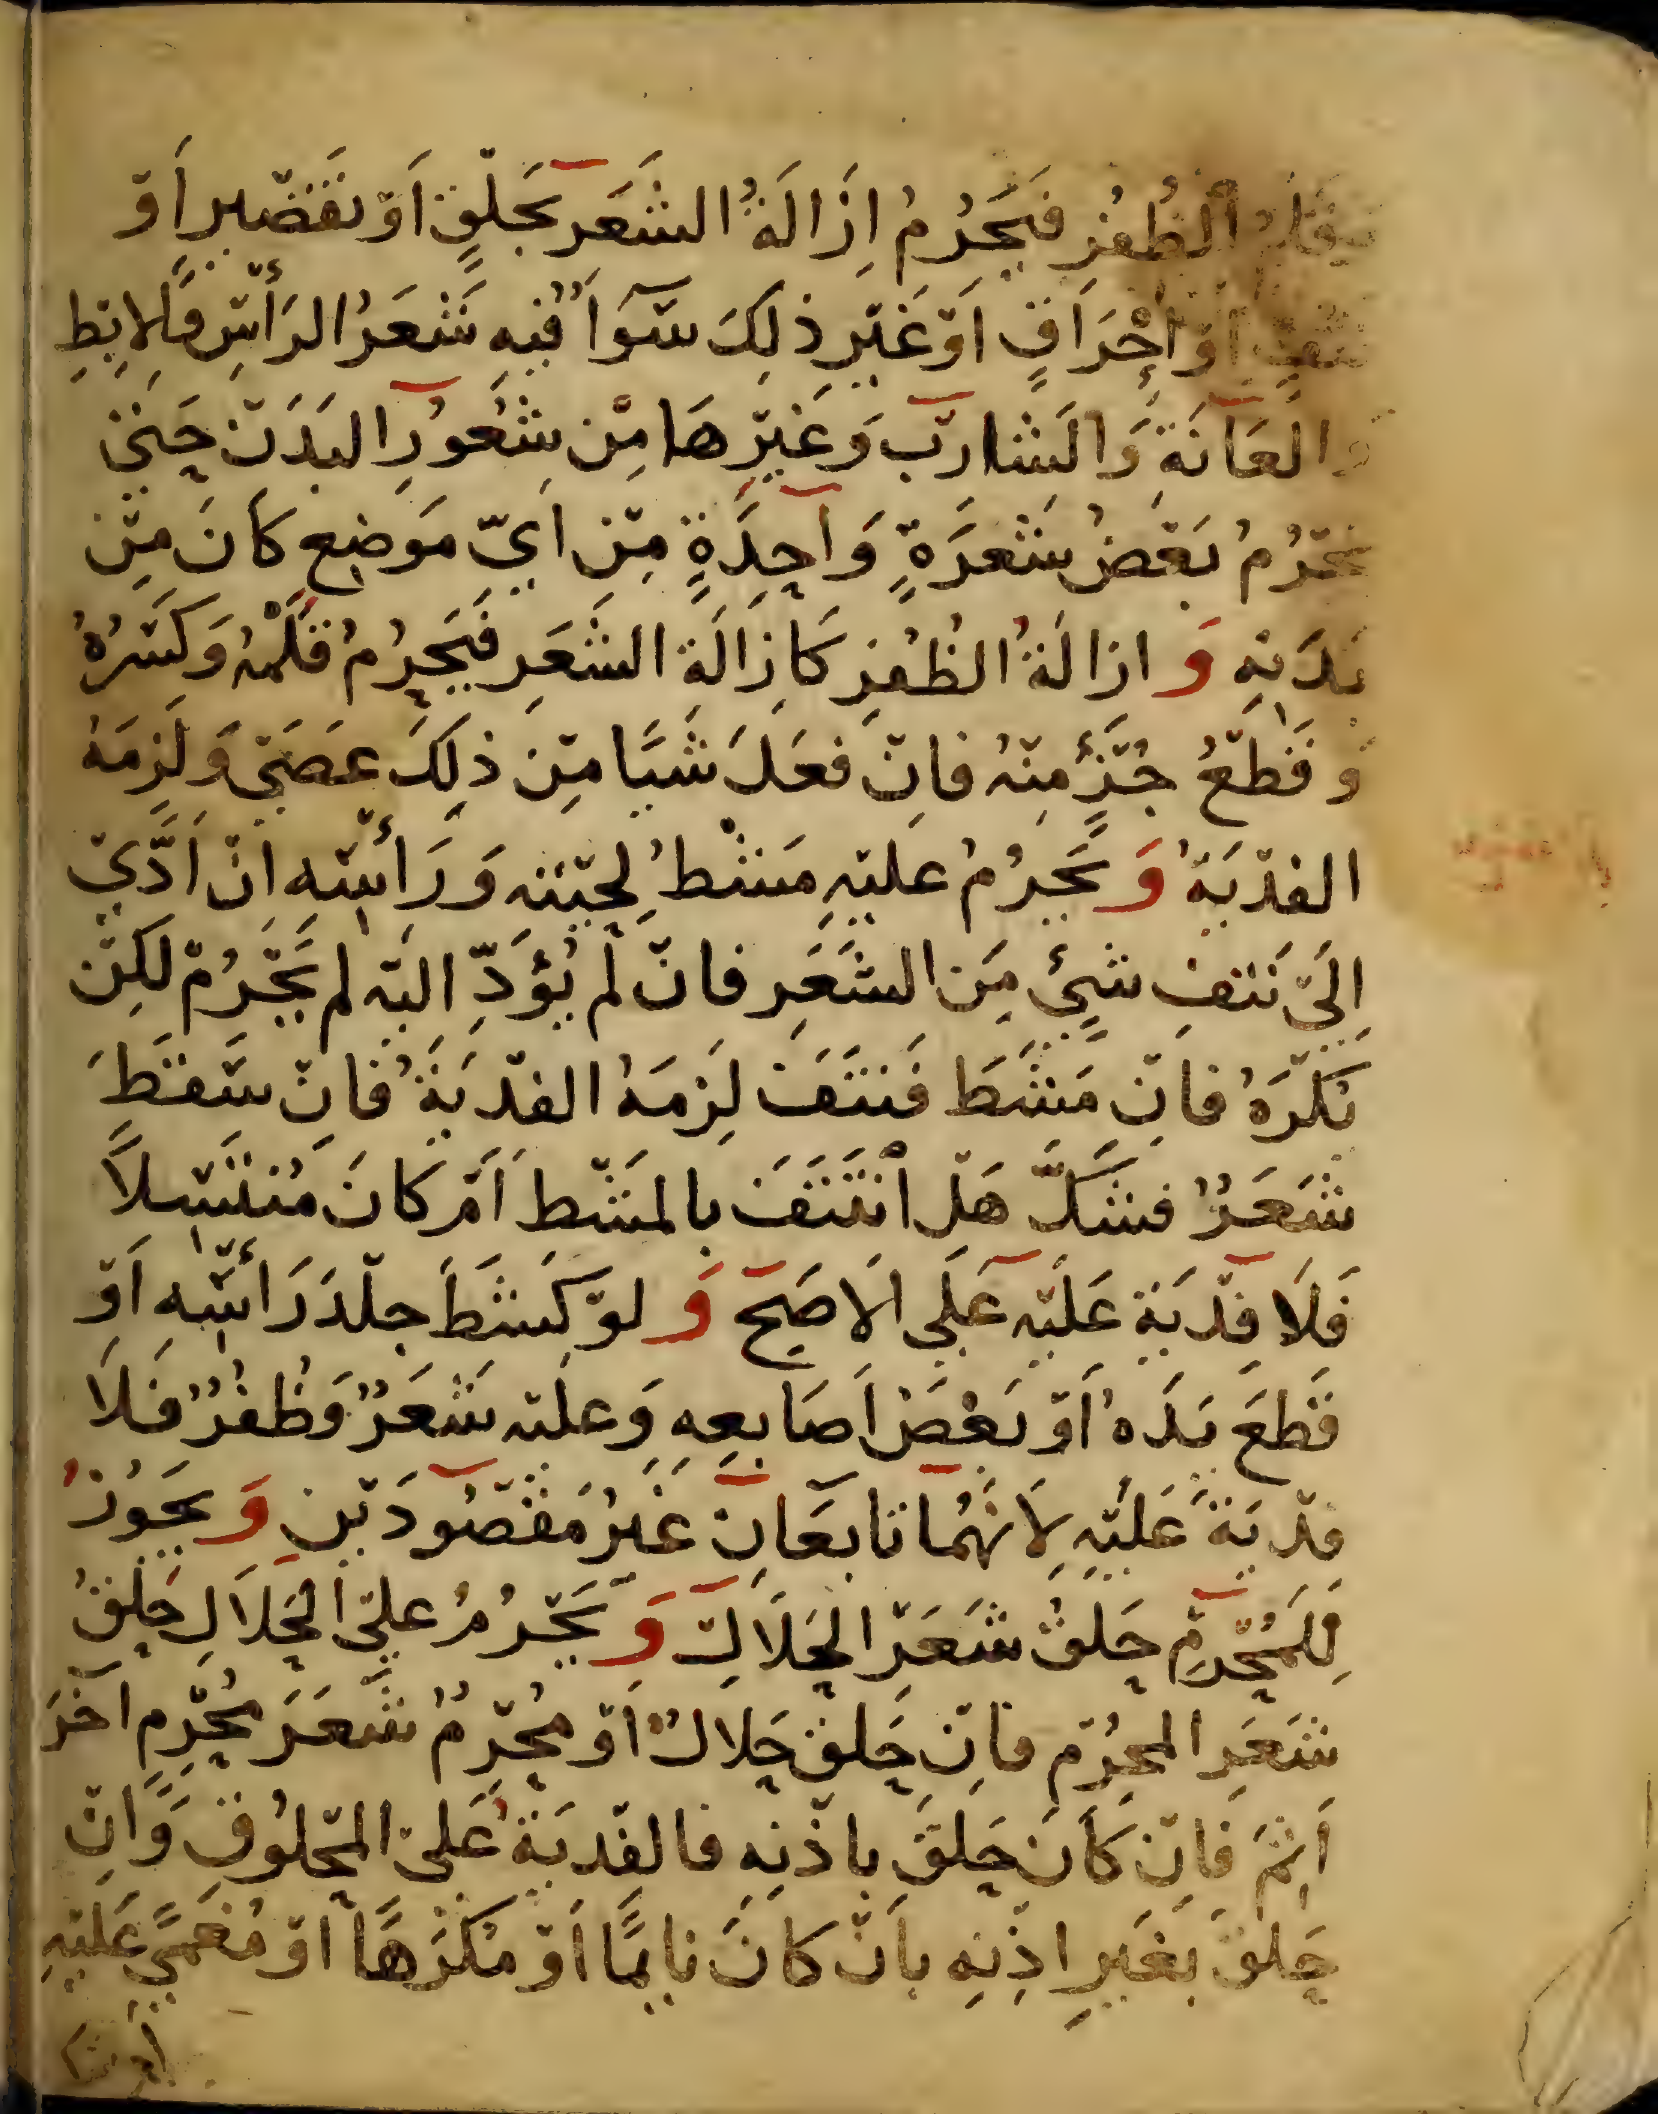 وَقَلْمِ الظُفُرِ فَيَحْرُمُ اِزَالَةُ الشَعَرِ بحَلْقٍ اَوْ تَقْصْيرٍ اَوْ
نَتْفٍ اَوْ اِحْرَاقٍ اَوْ غَيْرِ ذلِكَ سَوَاءٌ فيهِ شَعَرُ الرَأْسِ وَالاِبِطِ
وَالْعَانَةِ وَالشارِبْ وَغَيْرِهَا مِنْ شُعُورِ البَدَنْ حَتىّ
يحْرُمُ بَعْضُ شَعْرَةٍ وَاحِدَةٍ مِنْ اَيّ مَوضِعٍ كَانَ مِنْ
بَدَنِهِ وَ ازالَةُ الظُفُرِ كَازِالَةِ الشَعَرِ فَيَحِرُمُ قَلْمُهُ وَكَسْرُهُ
وَ قَطْعُ جُزْءٍ مِنْهُ فاِنْ فَعَلَ شَيًا مِنْ ذلِكَ عَصَىَ وَلَزِمَهُ
الفدْيَةُ وَ يَحِرُمُ عليْهِ مَشْطُ لِحيْتهِ وَرَأْسِه انْ اَدَّيْ
اِلَىْ نَتفِ شَيٍْ مِنَ الشَعَرِ فانْ لَمْ يُؤَدِّ اليْه لم يَحْرُمْ لكِنْ
يُكْرَهُ فاِنْ مَشَطَ فَنَتَفَ لِزمَهُ الفدْيَةُ فاِنْ سَقَطَ
شَعَرٌ فشَكَّ هَلْ انْتَتَفَ بالمَشْط اَمْ كَانَ مُنتَسِلاً
فَلَا فِدْيَة عَليْه عَلَى الاَصَحِ وَ لوْ كَشَطَ جِلْدَ رَأسْه اَوْ
قَطعَ يَدَهُ اَوْ بَعْضَ اَصَابِعِهِ وَعليْه شَعَرٌ وَظُفُرٌ فَلَا
فِدْيَةَ عَليْهِ لاَنهُمَا تابعَانِ غَيرُ مَقْصُودَيْنِ وَ يجَوُزُ
لِلمُحْرِمِ حَلقُ شَعَرِ الحَلَالِ وَ يَحْرُمُ عليَ الحَلاَلِ حَلْقُ
شَعَرِ المحرُمِ فاِنْ حَلَقَ حَلاَلٌ اَوْ مُحْرِمٌ شَعَرَ مُحْرِمٍ آخَرَ
اَثِمَ فَاِنْ كَانَ حَلقَ باذْنِهِ فالفِدْيَةُ عَلىَ المحْلوُقِ وَاِنْ
حَلقَ بغَيرِ اذِنِهِ بِاَنْ كانَ نايمًا اَوْ مُكْرَهًا اَوْ مُغمىً عَليْهِ